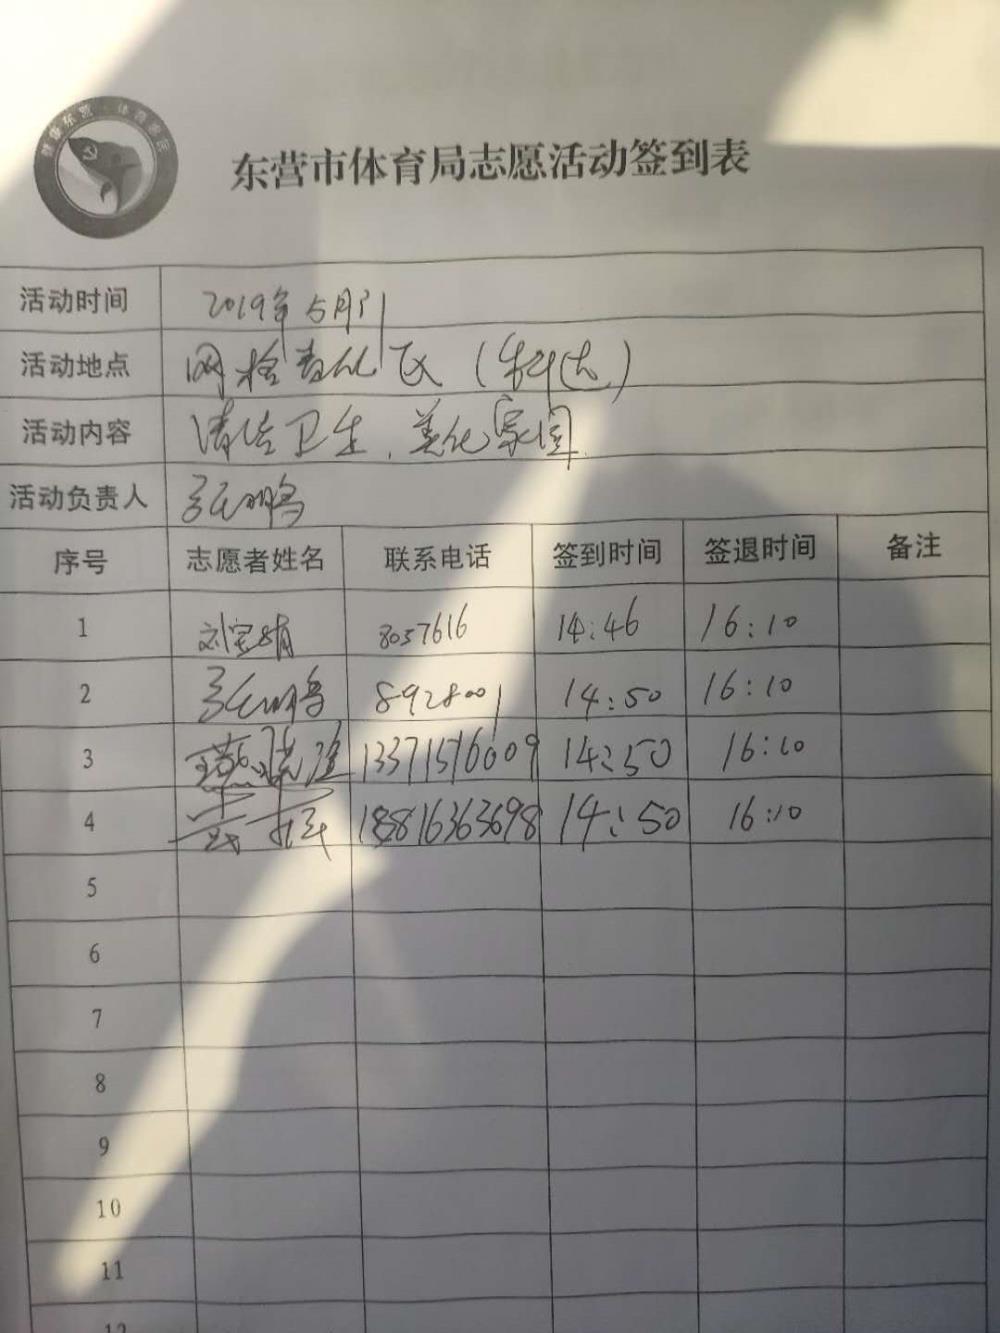 东营市体育局志愿活动签到表
活动时间 2019年5月
活动地点 网格责任区（科达）
活动内容 清洁卫生、美化家园
活动负责人 张明鲁
序号 志愿者姓名 联系电话 签到时间 签退时间 备注
1 刘宝娟 8057616 14:46 16:10
2 张明鲁 8928001 14:50 16:10
3 13371516009 14:50 16:10
4 18816363698 14:50 16:10
5
6
7
8
9
10
11
12